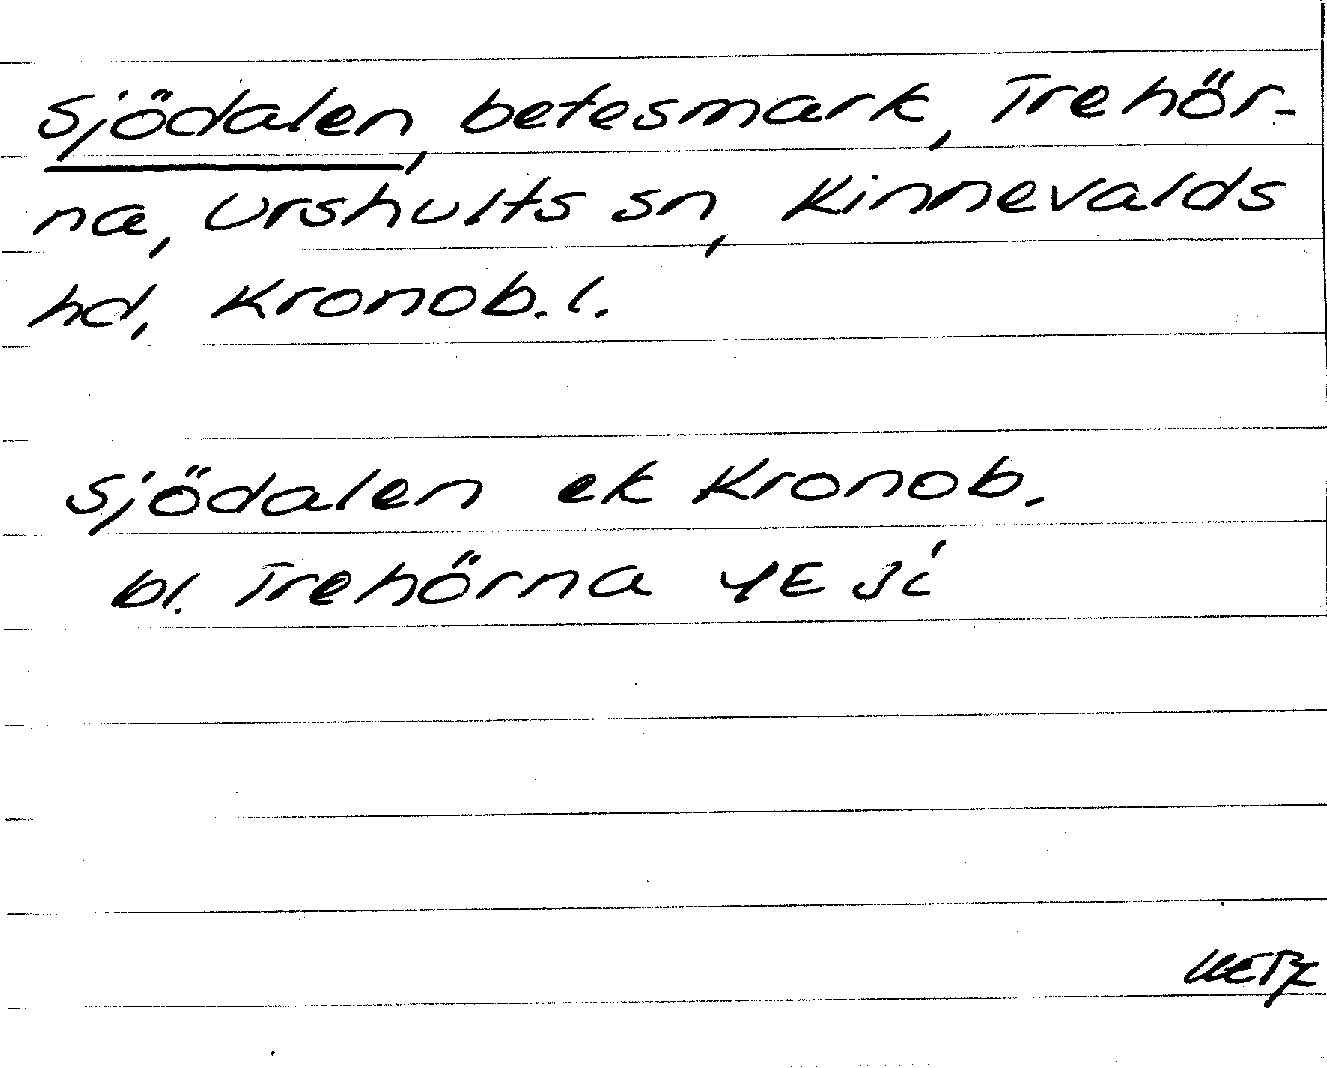 Sjödalen, betesmark, Trehör-
na, Urshults sn, Kinnevalds
hd, Kronob. l.
Sjödalen ek Kronob.
bl. Trehörna 4E